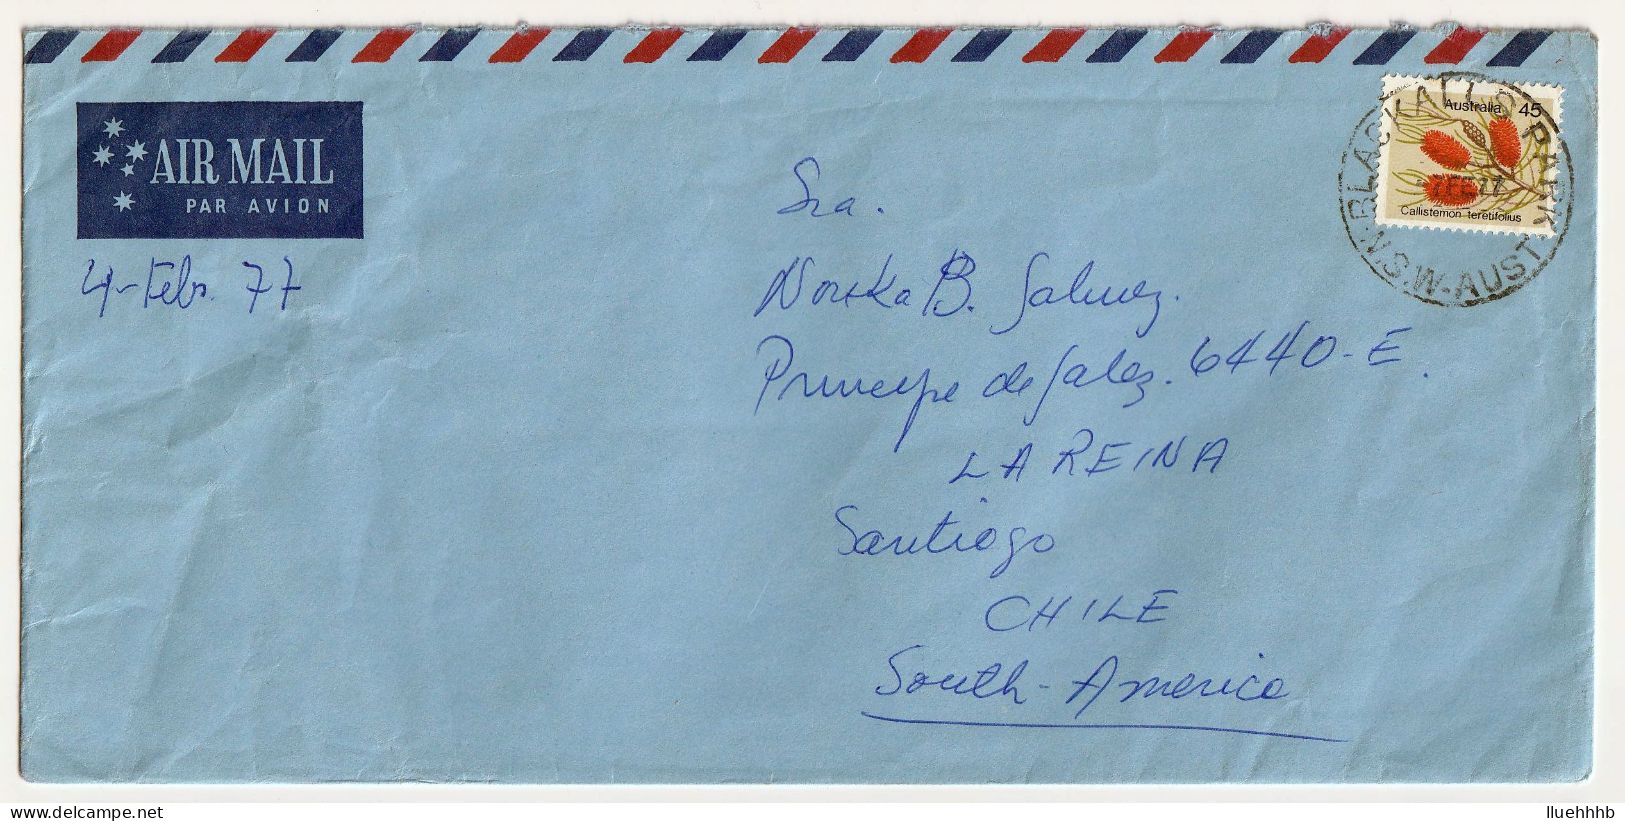 AIR MAIL
PAR AVION
4-Febr. 77
Australia 45
Callistemon teretifolius
BLACKALLS PARK
N.S.W-AUST
FE 77
Sra.
B.
Principe de Gales. 6440-E.
LA REINA
Santiago
CHILE
South-America
Delcampe.net
lluehhhb